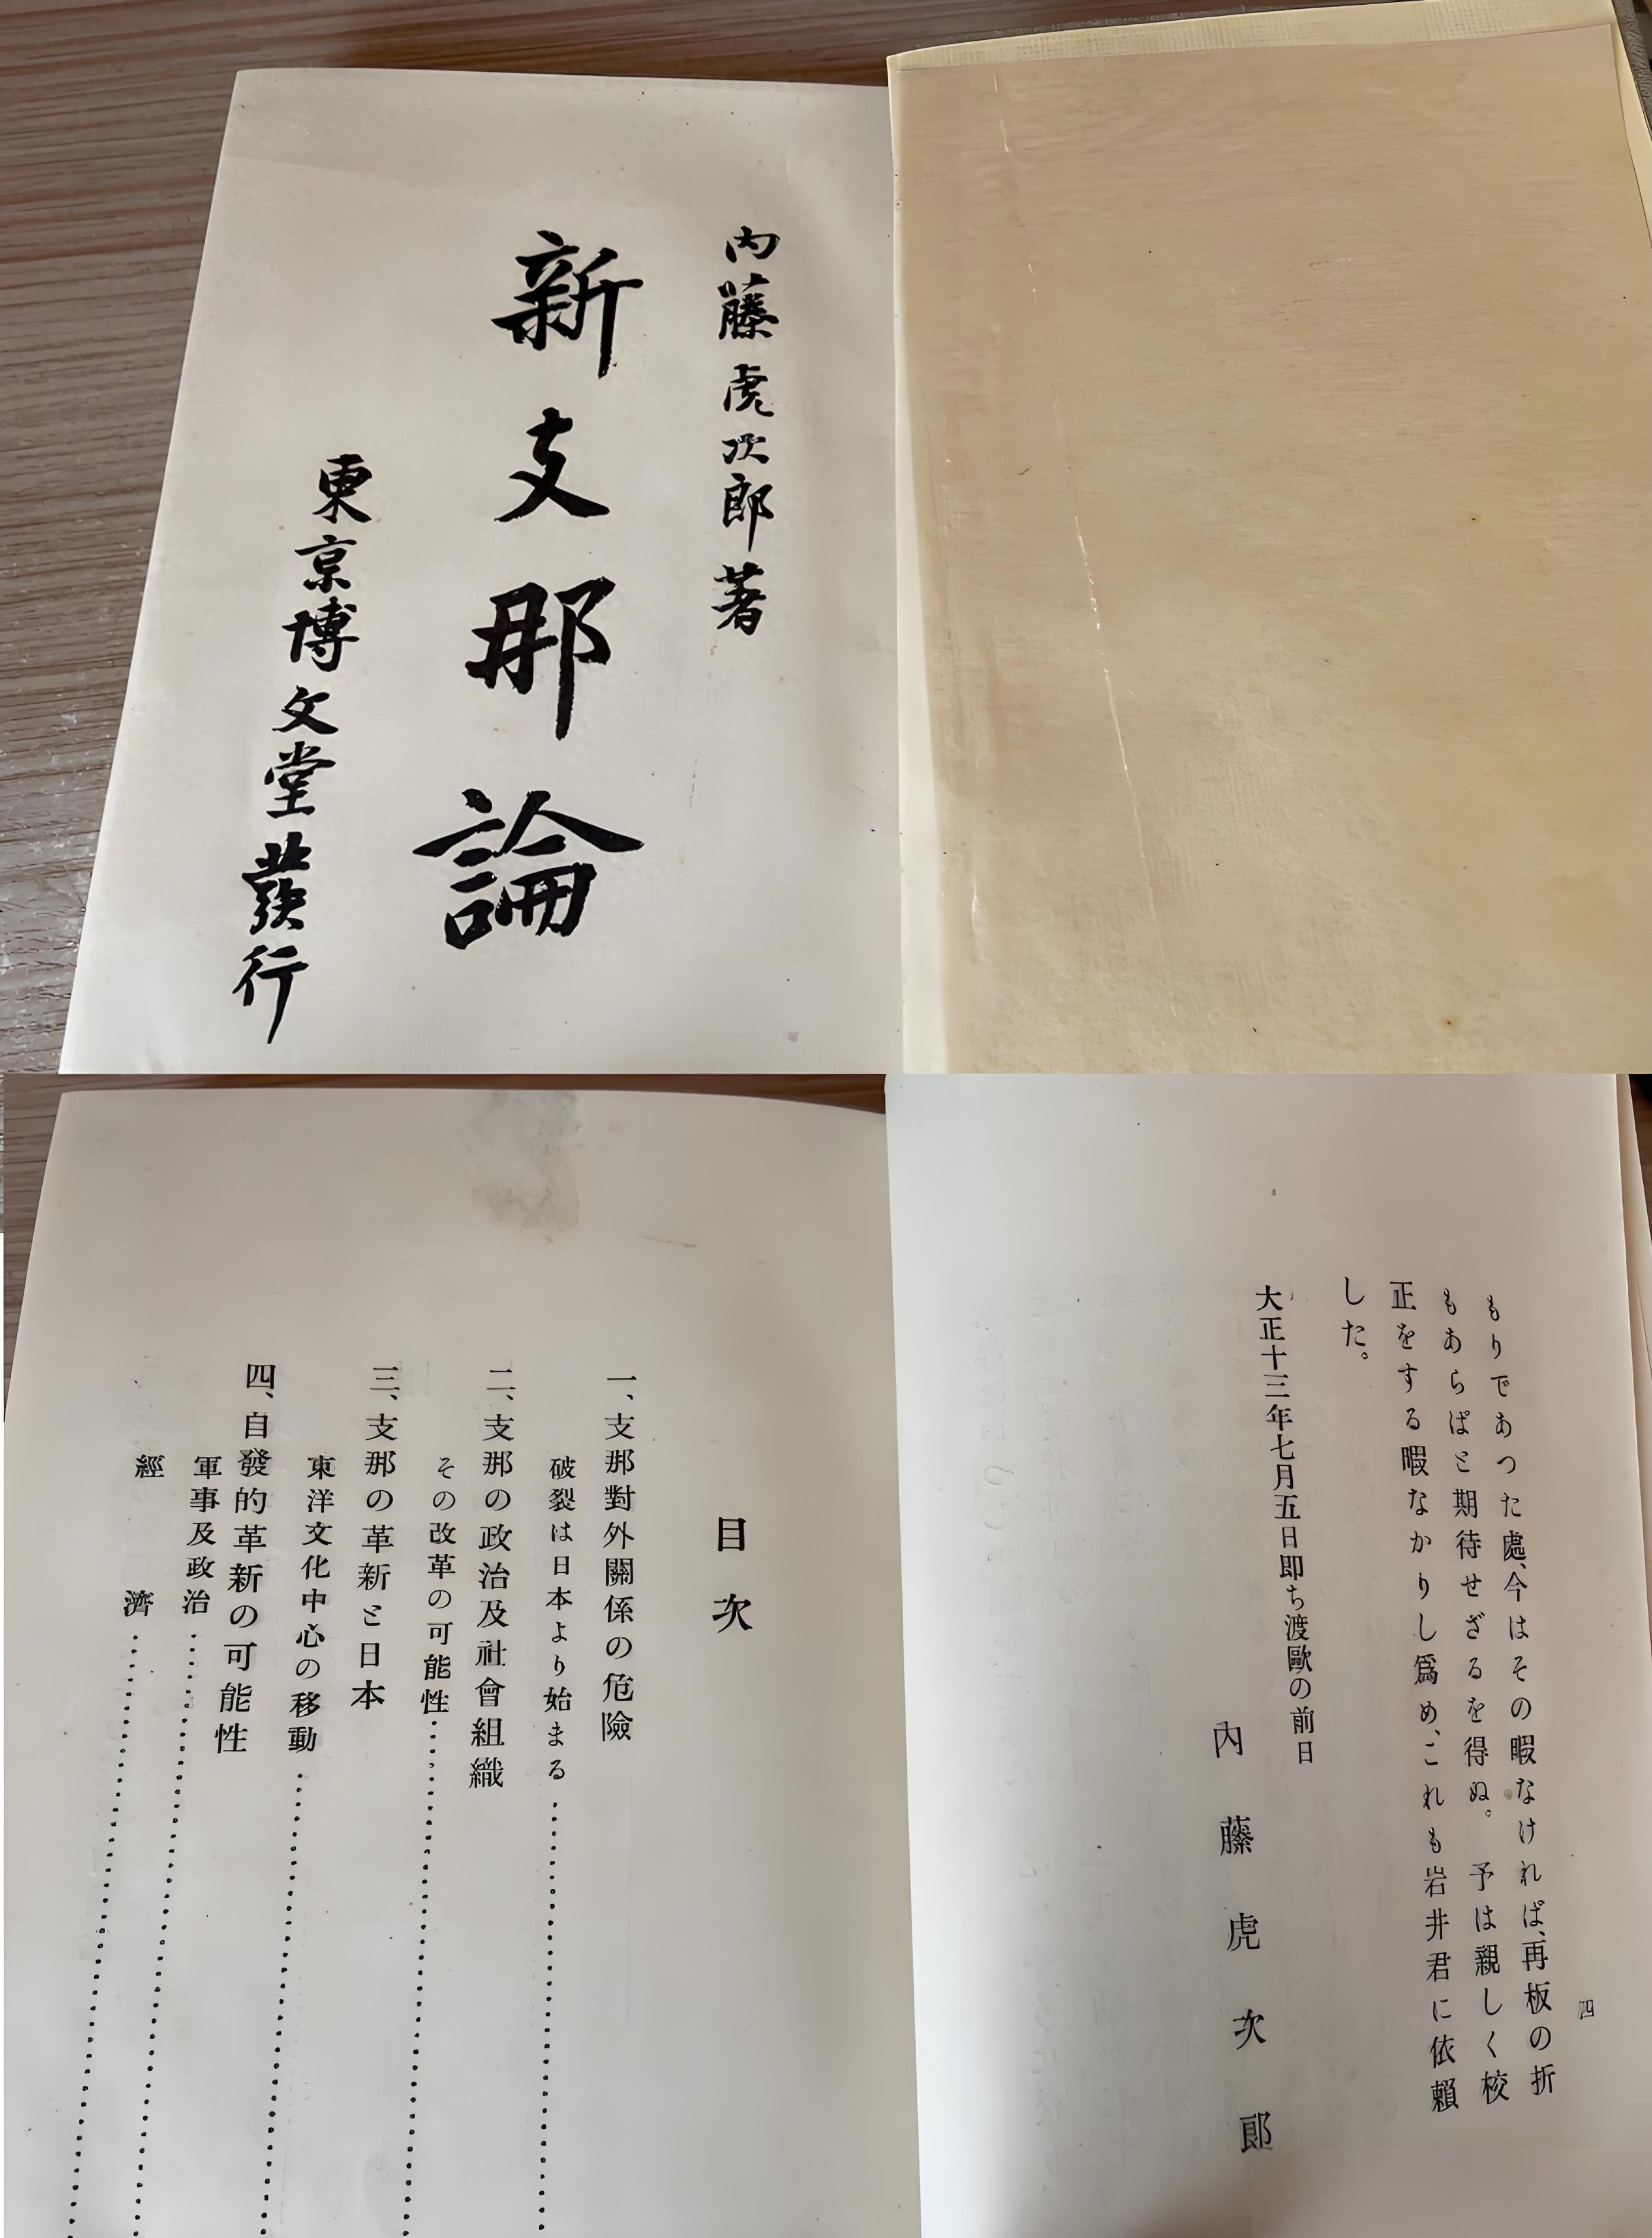 内藤虎次郎著
新支那論
東京博文堂發行
四
もりであつた處、今はその暇なければ、再板の折
もあらばと期待せざるを得ぬ。予は親しく校
正をする暇なかりし爲め、これも岩井君に依賴
した。
大正十三年七月五日即ち渡歐の前日
內藤虎次郞
目次
一、支那對外關係の危險
破裂は日本より始まる
二、支那の政治及社會組織
その改革の可能性
三、支那の革新と日本
東洋文化中心の移動
四、自發的革新の可能性
軍事及政治
經濟